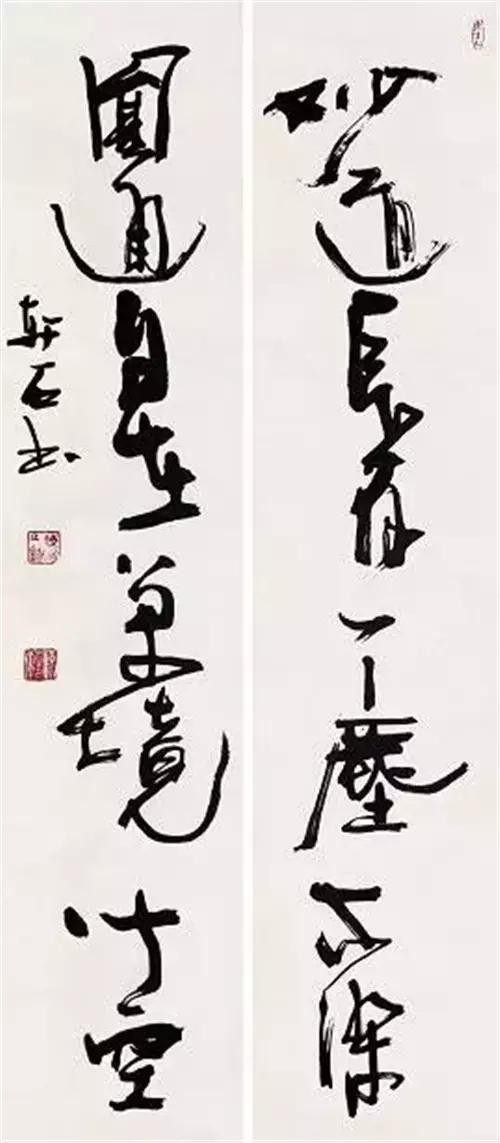 妙道長存一塵不染
圓通自在萬境空
石书